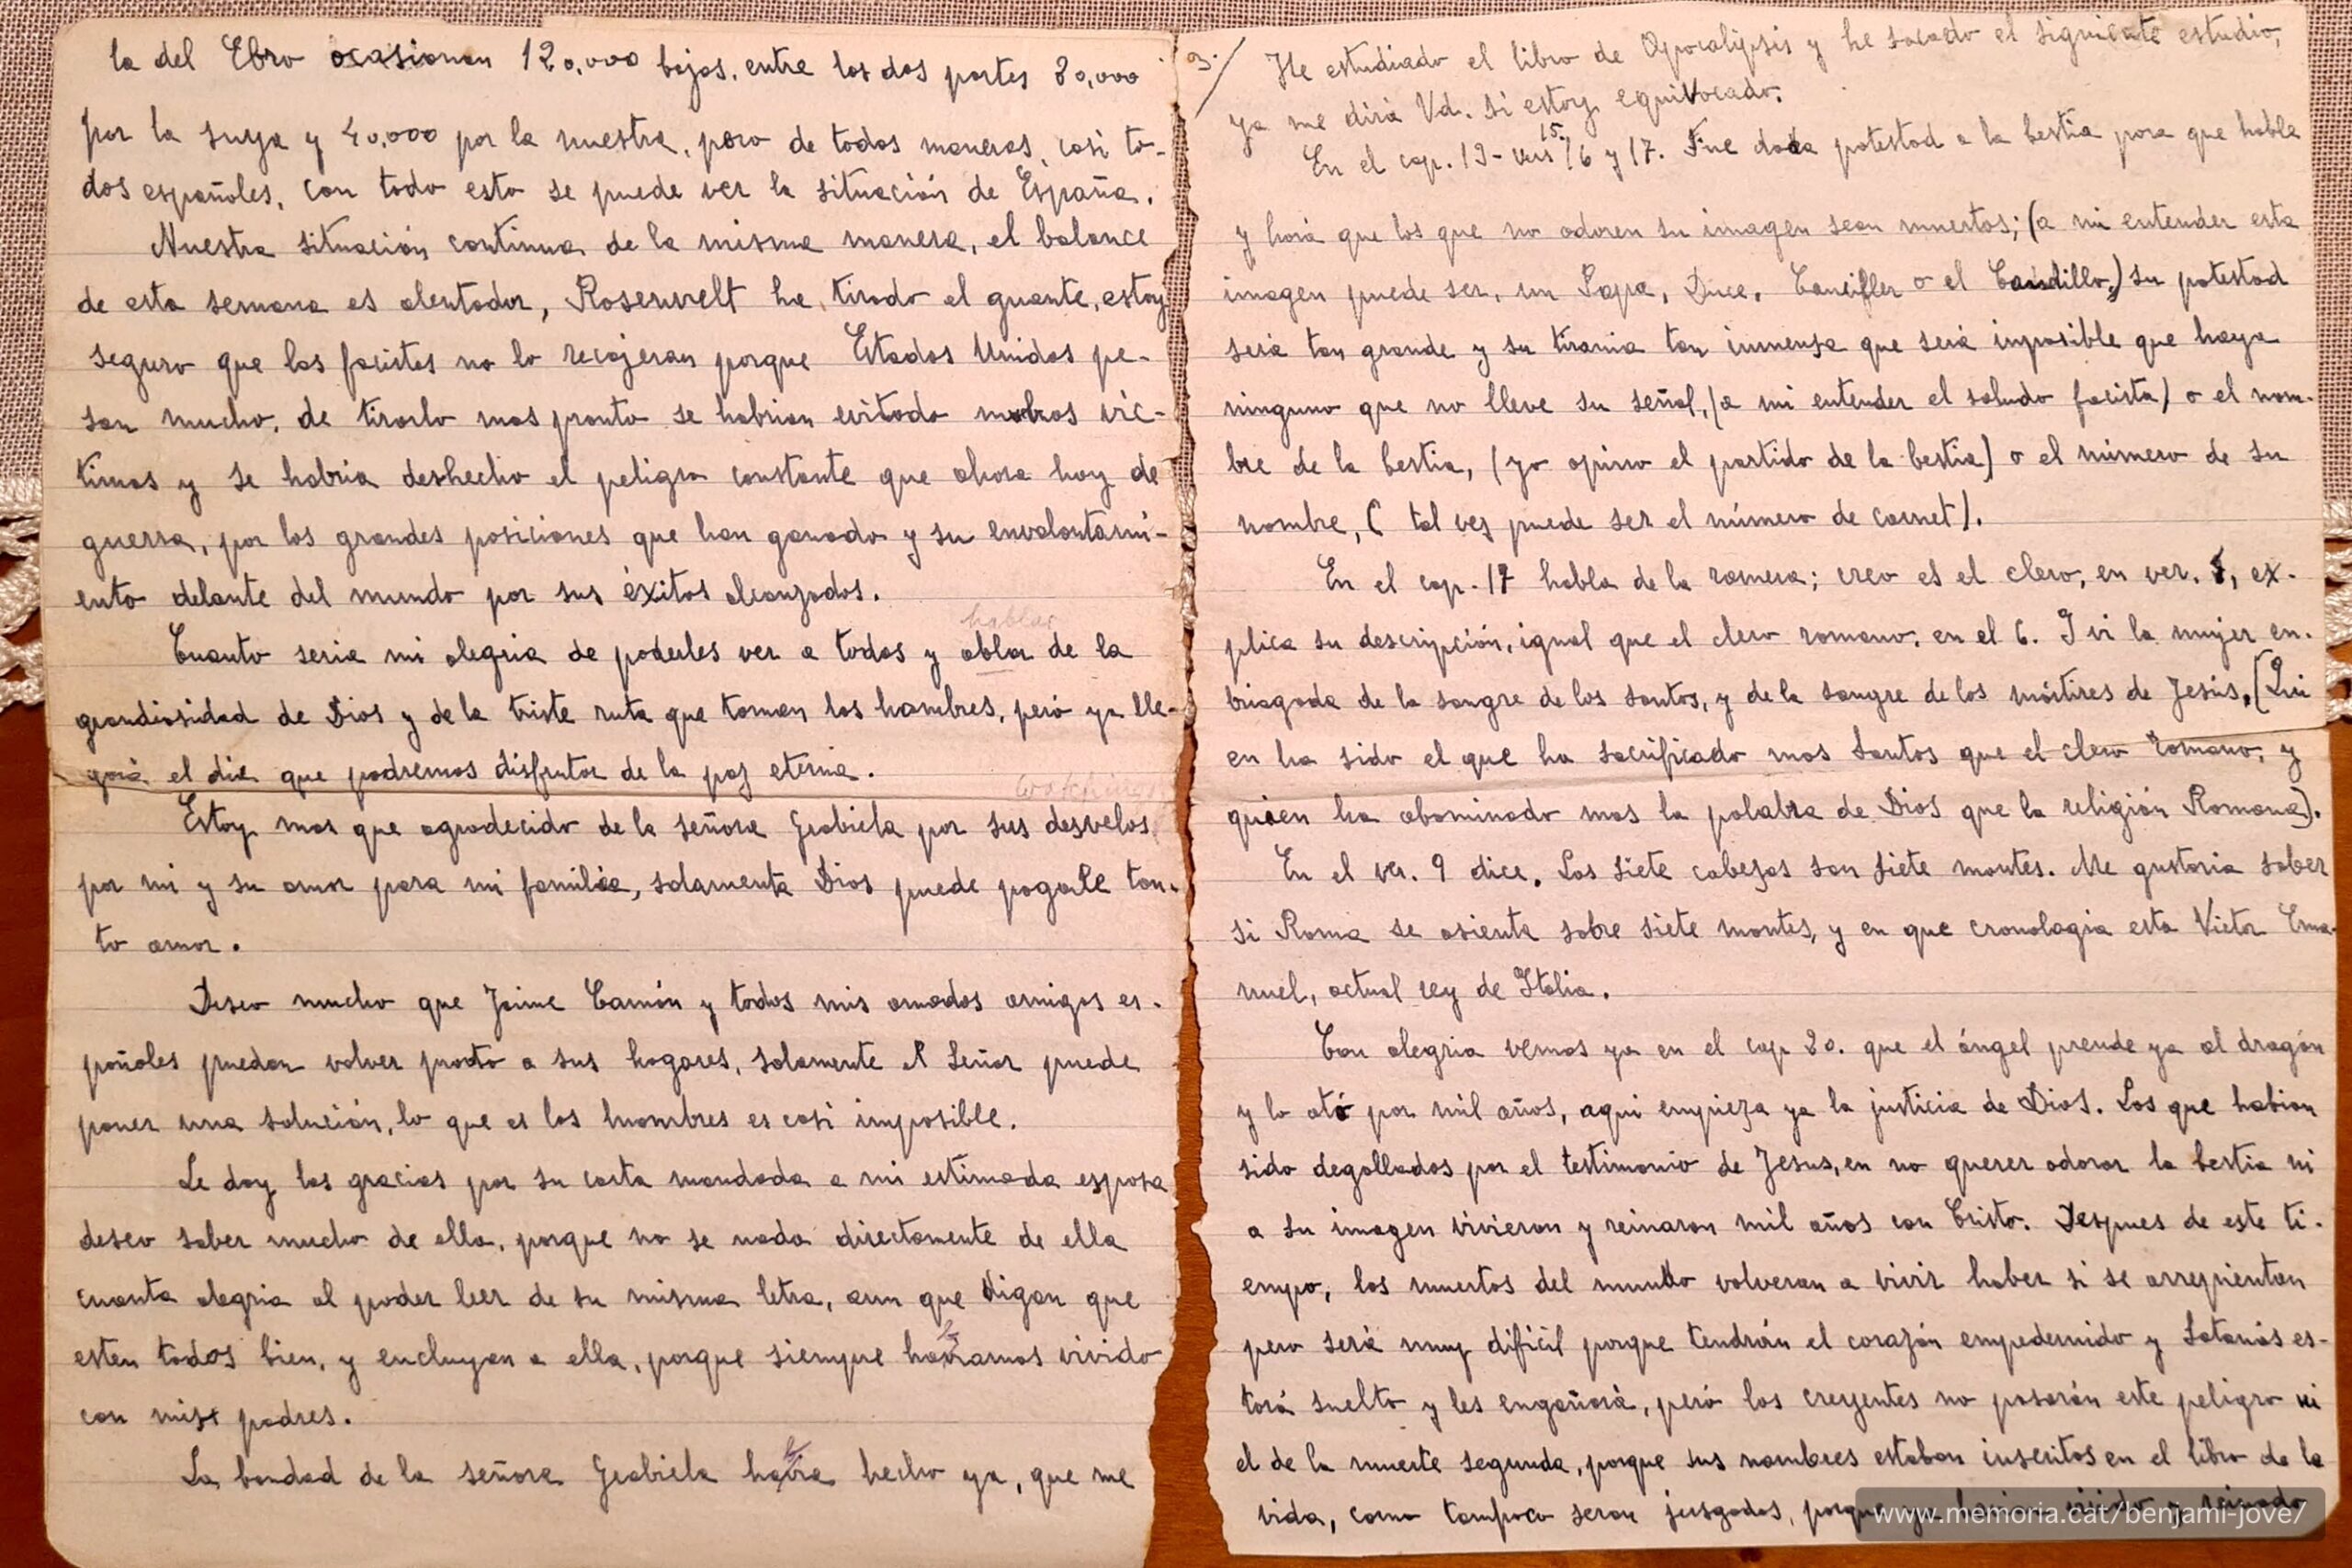 la del Ebro ocasionan 120,000 bajas, entre las dos partes 80,000
por la suya y 40,000 por la nuestra, pero de todas maneras, casi to-
dos españoles, con todo esto se puede ver la situación de España.
Nuestra situación continua de la misma manera, el balance
de esta semana es alentador, Rosenvelt ha tirado el guante, estoy
seguro que los facistes no lo recojeran porque Estados Unidos pe-
san mucho, de tirarlo mas pronto se habrian evitado muchas vic-
timas y se habria deshecho el peligro constante que ahora hay de
guerra, por las grandes posiciones que han ganado y su envalontami-
ento delante del mundo por sus éxitos alcanzados.
hablar
Cuanto seria mi alegria de poderles ver a todos y ablar de la
grandiosidad de Dios y de la triste ruta que toman los hombres, peró ya lle-
gará el dia que podremos disfrutar de la paz eterna.
watchings
Estoy mas que agradecido de la señora Grabiela por sus desvelos
por mi y su amor para mi familia, solamenta Dios puede pagarle tan-
to amor.
Deseo mucho que Jaime Camón y todos mis amados amigos es-
pañoles puedan volver pronto a sus hogares, solamente el Señor puede
poner una solución, lo que es los hombres es casi imposible.
Le doy las gracias por su carta mandada a mi estimada esposa
deseo saber mucho de ella, porque no se nada directamente de ella
cuanta alegria al poder leer de su misma letra, aun que digan que
esten todos bien, y encluyan a ella, porque siempre habiamos vivido
con mis padres.
La bondad de la señora Grabiela habra hecho ya, que me
3. / He estudiado el libro de Apocalipsis y he sacado el siguiente estudio,
ya me dirá Vd. si estoy equivocado.
En el cap. 13 - vers 15. 16 y 17. Fue dada potestad a la bestia para que hable
y hará que los que no adoren su imagen sean muertos; (a mi entender esta
imagen puede ser, un Papa, Duce, Canciller o el Caudillo,) su potestad
será tan grande y su tirania tan inmensa que será imposible que haya
ninguno que no lleve su señal, (a mi entender el saludo facista) o el nom-
bre de la bestia, (yo opino el partido de la bestia) o el número de su
nombre, ( tal vez puede ser el número de carnet).
En el cap. 17 habla de la ramera; creo es el clero, en ver. ex-
plica su descripción, igual que el clero romano, en el 6. I vi la mujer en-
briagada de la sangre de los santos, y de la sangre de los mártires de Jesús, (Qui
en ha sido el que ha sacrificado mas Santos que el clero romano, y
quien ha abominado mas la palabra de Dios que la religión Romana).
En el ver. 9 dice. Las siete cabezas son siete montes. Me gustaria saber
si Roma se asienta sobre siete montes, y en que cronologia esta Victor Ema-
nuel, actual rey de Italia.
Con alegria vemos ya en el cap 20. que el ángel prende ya al dragón
y lo ató por mil años, aqui empieza ya la justicia de Dios. Los que habian
sido degollados por el testimonio de Jesus, en no querer adorar la bestia ni
a su imagen vivieron y reinaron mil años con Cristo. Despues de este ti-
empo, los muertos del mundo volveran a vivir haber si se arrepientan
pero será muy dificil porque tendrán el corazón empedernido y Satanás es-
tará suelto y les engañará, peró los creyentes no pasarán este peligro ni
el de la muerte segunda, porque sus nombres estaban inscritos en el libro de la
vida, como tampoco seran jusgados, porque ya habian vivido y reinado
www.memoria.cat/benjami-jove/